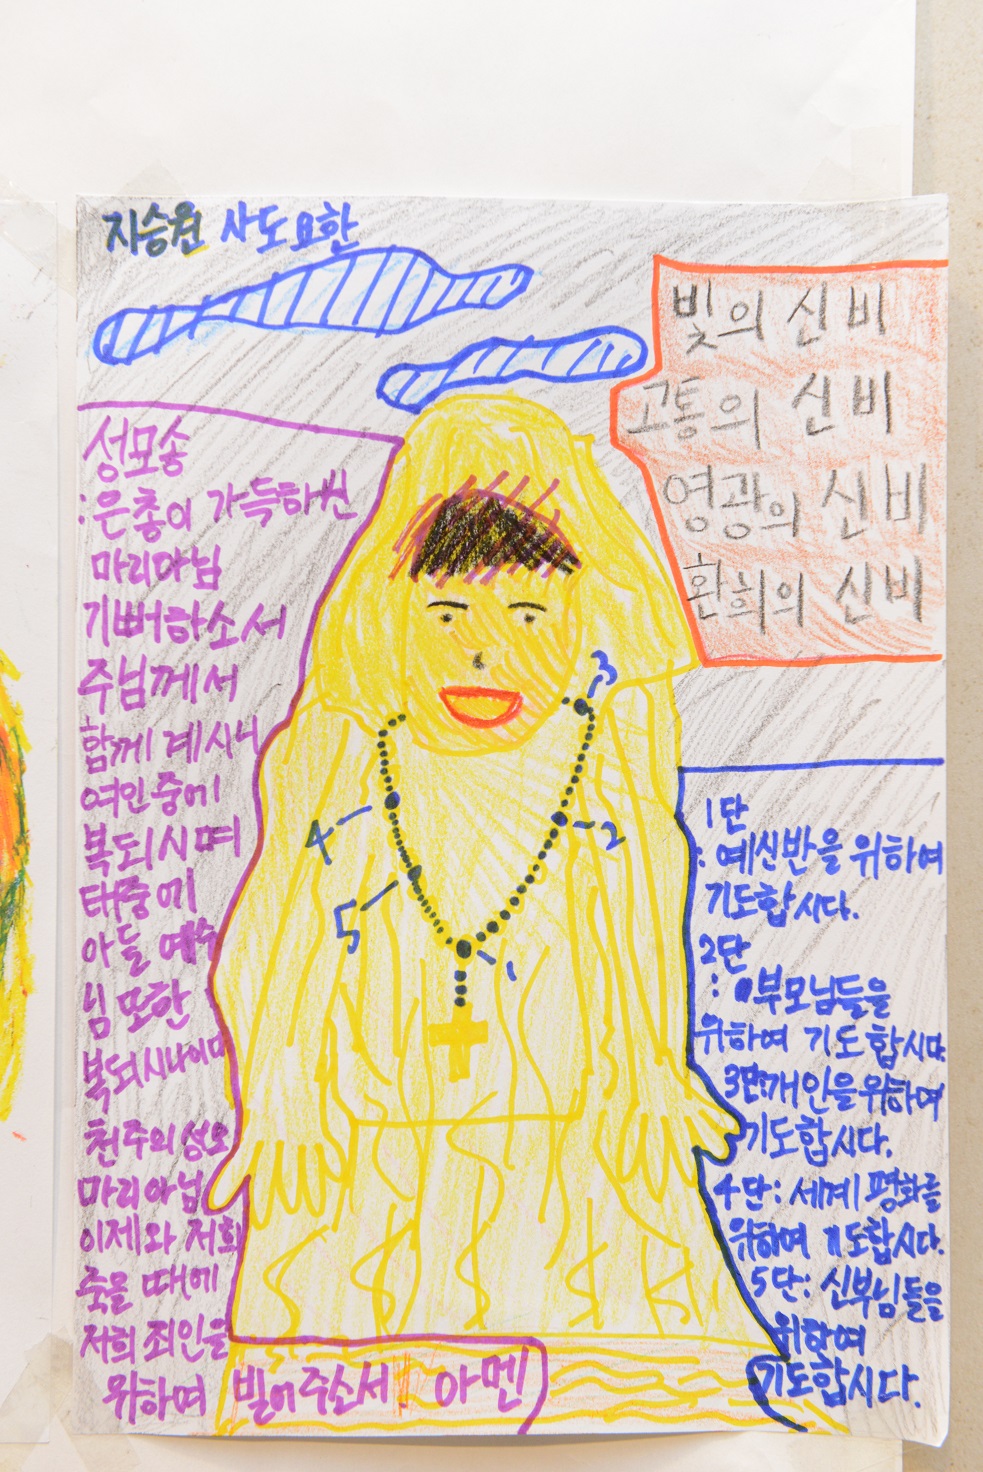 지승원 사도요한
빛의 신비
고통의 신비
영광의 신비
환희의 신비
성모송
:은총이 가득하신
마리아님
기뻐하소서
주님께서
함께 계시니
여인중에
복되시며
태중에
아들 예수
님 또한
복되시나이다
천주의 성모
마리아님
이제와 저희
죽을 때에
저희 죄인을
위하여 빌어주소서 아멘
3
4
2
5
1
1단
: 예신반을 위하여
기도합시다.
2단
: 부모님들을
위하여 기도합시다.
3단:개인을위하여
기도합시다.
4단: 세계 평화를
위하여 기도합시다.
5단: 신부님들을
위하여
기도합시다.